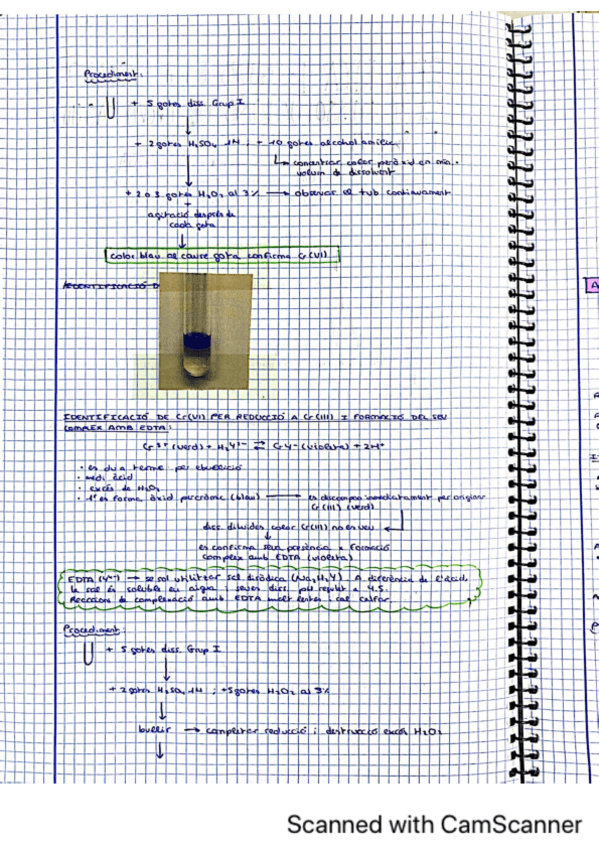 Procediment:
+ 5 gotes diss. Grup I
+ 2 gotes H₂SO₄ 1M ; + 10 gotes alcohol amílic
concentrar color peròxid en
volum de dissolvent
+ 2 o 3 gotes H₂O₂ al 3% → observar el tub contínuament
+
agitació després de
cada gota
color blau al caure gota confirma Cr(VI)
IDENTIFICACIÓ D
IDENTIFICACIÓ DE Cr(VI) PER REDUCCIÓ A Cr(III) I FORMACIÓ DEL SEU
COMPLEX AMB EDTA:
Cr³⁺ (verd) + H₂Y²⁻ ⇄ CrY⁻ (violeta) + 2H⁺
• es du a terme per ebullició
• medi àcid
• excés de H₂O₂
• 1r es forma àcid peròxid (blau) → es descompon immediatament per originar
Cr(III) (verd)
diss. diluïdes color Cr(III) no es veu
es confirma seva presència x formació
complex amb EDTA (violeta)
EDTA (Y⁴⁻) → se sol utilitzar sal disòdica (Na₂H₂Y). A diferència de l'àcid,
la sal és soluble en aigua i seves diss. pH regulat a 4.5.
Reaccions de complexació amb EDTA molt lentes i cal calfar.
Procediment:
+ 5 gotes diss. Grup I
+ 2 gotes H₂SO₄ 1M ; +5 gotes H₂O₂ al 3%
bullir → completar reducció i destrucció excés H₂O₂
A
Scanned with CamScanner